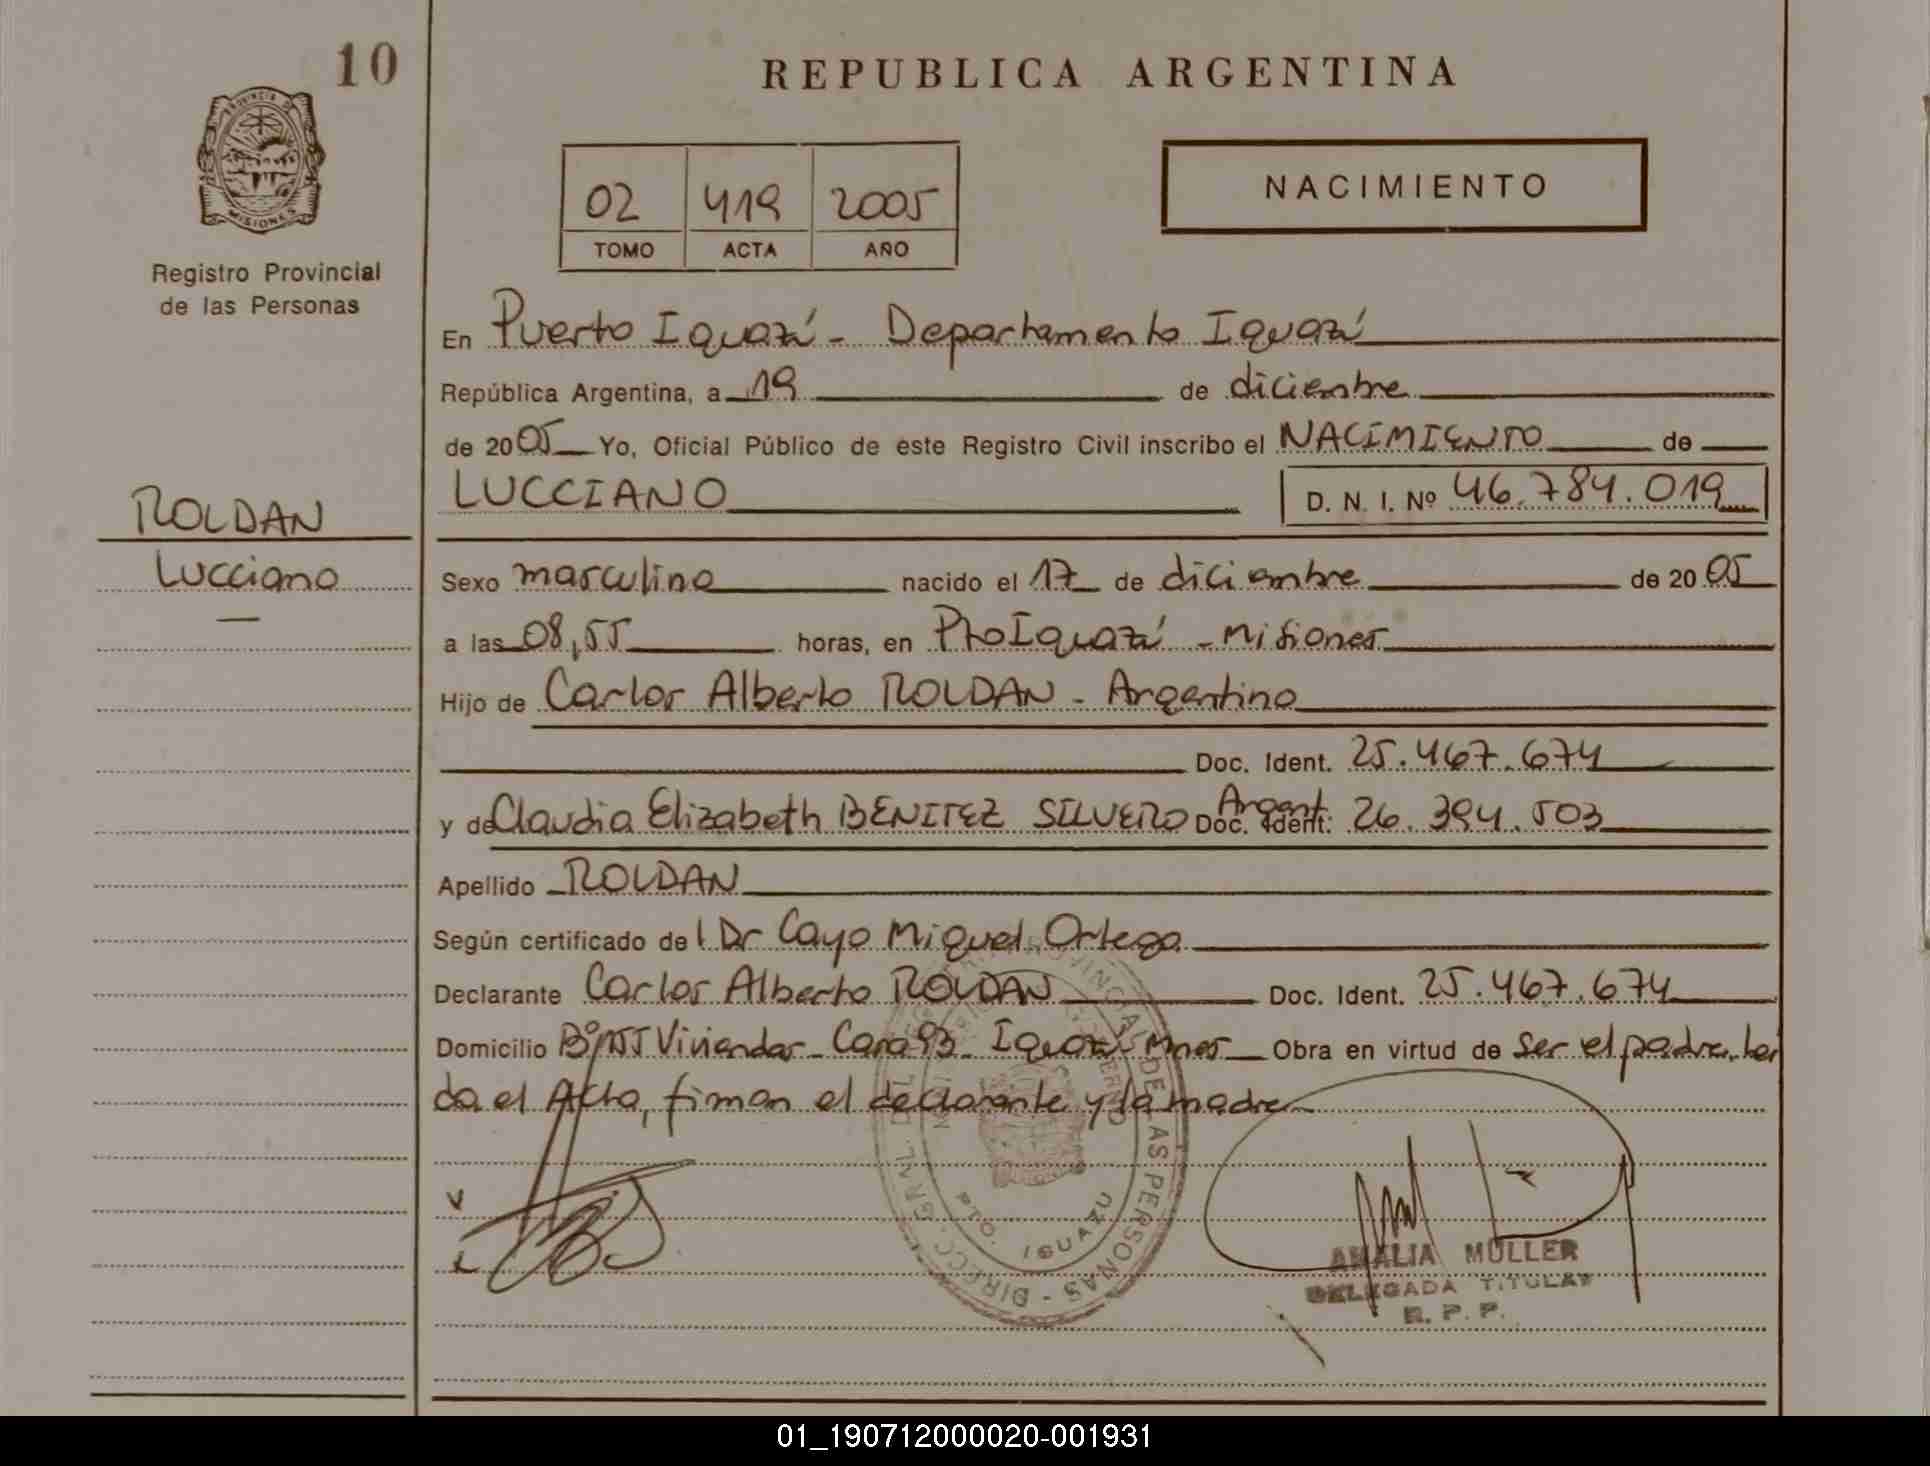 10
REPUBLICA ARGENTINA
PROVINCIA DE
MISIONES
Registro Provincial
de las Personas
02 419 2005
TOMO ACTA AÑO
NACIMIENTO
En Puerto Iguazú - Departamento Iguazú
República Argentina, a 19 de diciembre
de 2005 Yo, Oficial Público de este Registro Civil inscribo el NACIMIENTO de
LUCCIANO D. N. I. Nº 46.784.019
ROLDAN
Lucciano
Sexo masculino nacido el 17 de diciembre de 2005
a las 08,55 horas, en Pto Iguazú - Misiones
Hijo de Carlos Alberto ROLDAN - Argentino
Doc. Ident. 25.467.674
y de Claudia Elizabeth BENITEZ SILVERO Argent. Doc. Ident. 26.394.503
Apellido ROLDAN
Según certificado del Dr Cayo Miguel Ortega
Declarante Carlos Alberto ROLDAN Doc. Ident. 25.467.674
Domicilio Viviendas - Casa 93 - Iguazú - Mnes Obra en virtud de ser el padre. Leí
da el Acta, firman el declarante y la madre
DIRECC. GRAL. DEL REGISTRO PROVINCIAL DE LAS PERSONAS
PTO. IGUAZU
AMALIA MULLER
DELEGADA TITULAR
R. P. P.
01_190712000020-001931